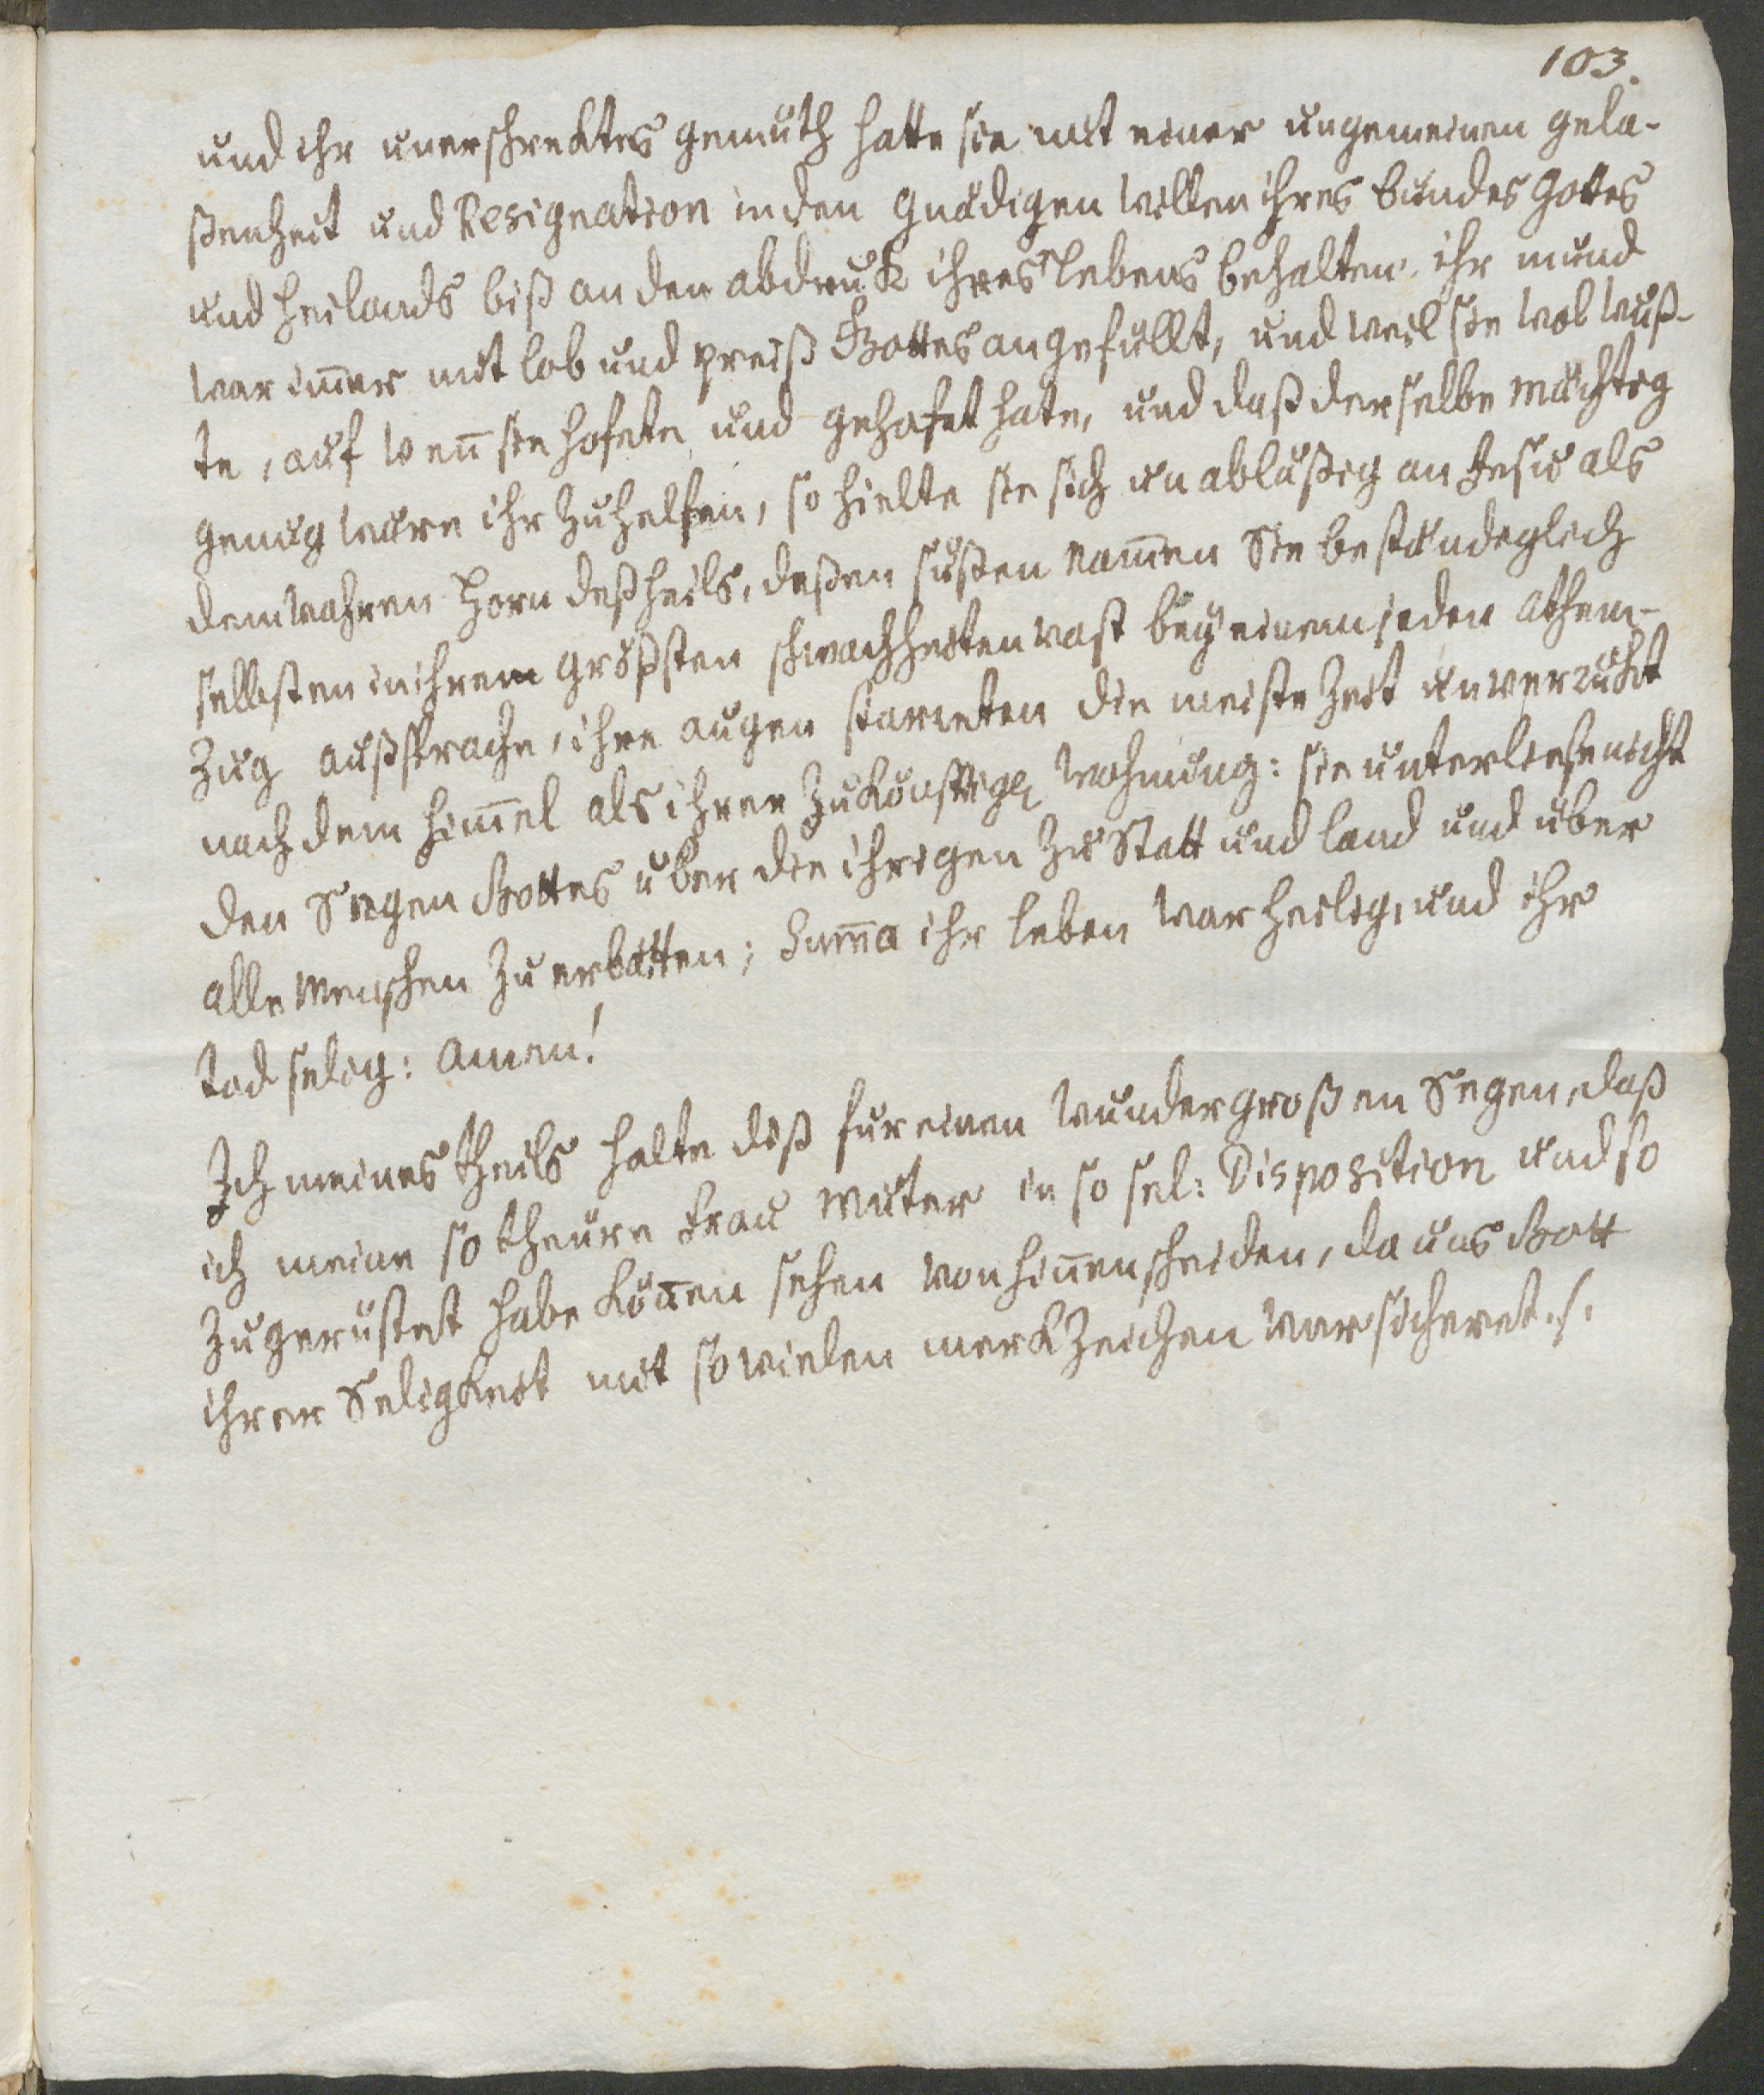 103.
und ihr unerschrektes gemüth hatte sie mit einer ungemeinen gela-
ßenheit und Resignation in den gnädigen willen ihres bundes Gottes
und heilands biß an den abdruk ihres lebens behalten. ihr mund
war im̄er mit lob und preiß Gottes angefüllt, und weil sie wol wuß-
te, auf wen̄ sie hofete und gehofet hate, und daß derselbe mächtig
genug wäre ihr zuhelfen, so hielte sie sich unabläßig an Jesus als
dem wahren Horn deß heils, deßen süßen nam̄en Sie beständiglich
selbsten in ihrem größsten schwachheiten vast bey einem jeden athem-
zug außsprache, ihre augen starreten die meiste zeit unverrükt
nach dem him̄el als ihrer zukünftigen wohnung: sie unterliesse nicht
den Segen Gottes über die ihrigen zu Statt und land und über
alle menschen zu erbätten; Sum̄a ihr leben war heilig, und ihr
tod selig: amen!
Ich meines theils halte diß für einen wunder großen Segen, daß
ich meine so theure frau muter in so sel: Disposition und so
zugerüstet habe kön̄en sehen von hin̄en scheiden, da uns Gott
ihrer Seligkeit mit so vielen merkzeichen versicheret./.